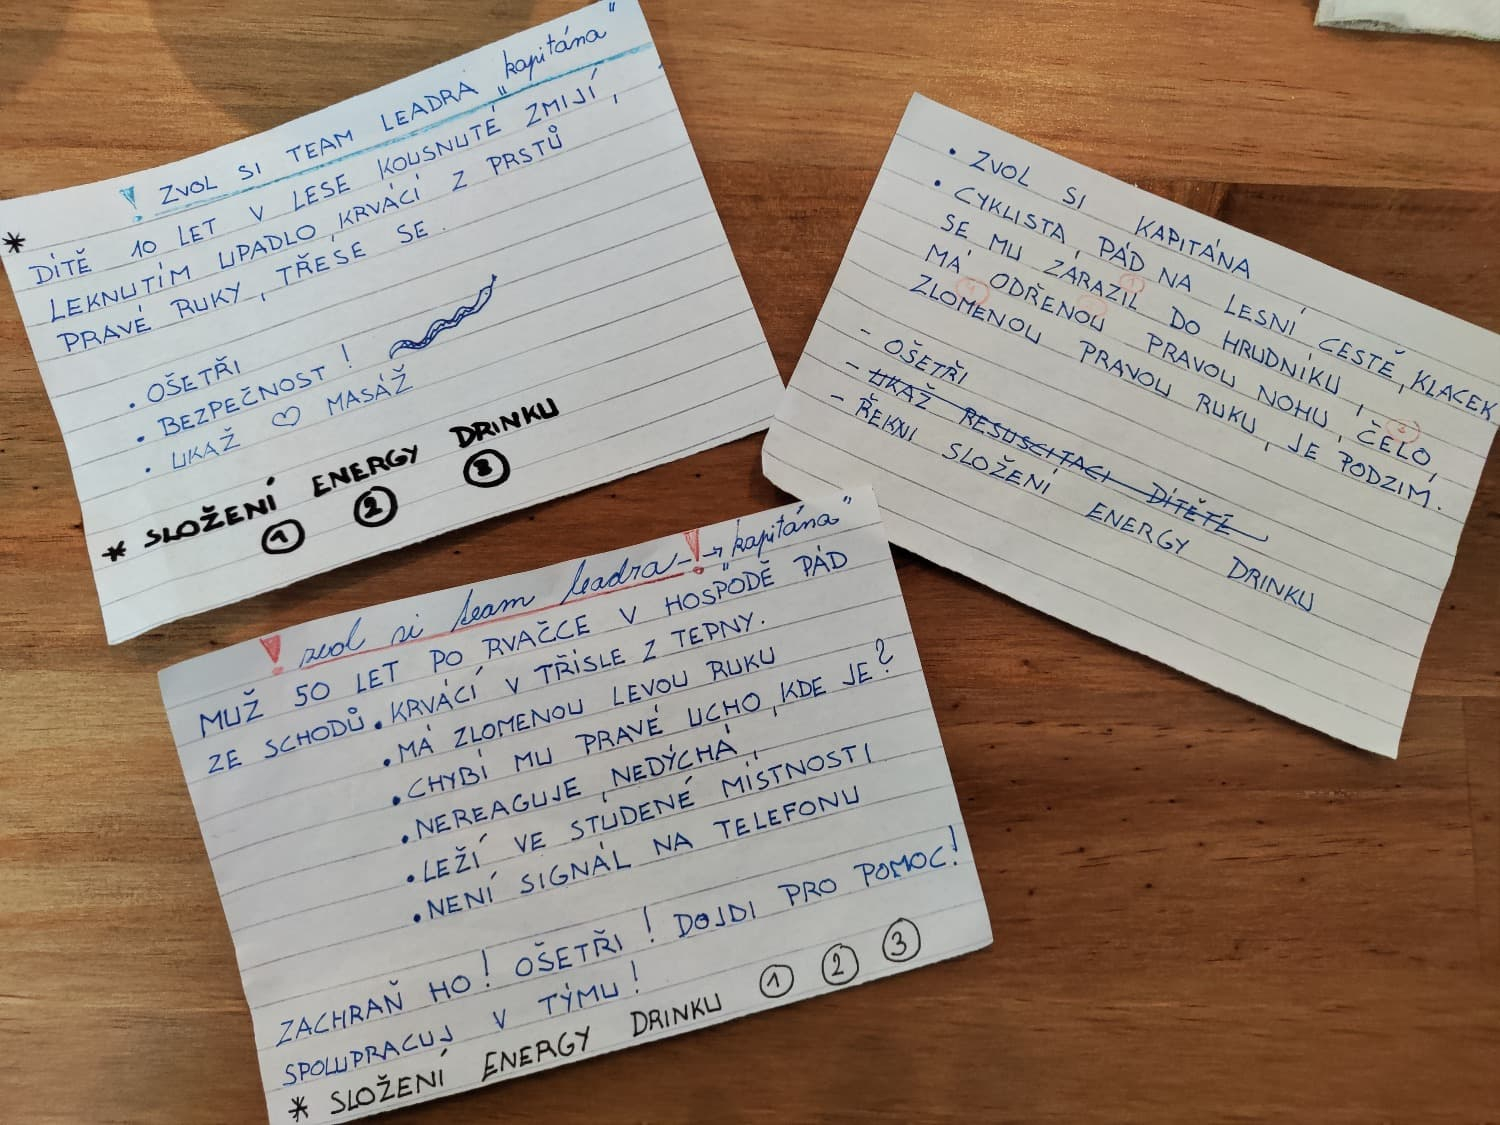 ! ZVOL SI TEAM LEADRA „kapitána"
* DÍTĚ 10 LET V LESE KOUSNUTÉ ZMIJÍ,
LEKNUTÍM UPADLO, KRVÁCÍ Z PRSTŮ
PRAVÉ RUKY, TŘESE SE.
• OŠETŘI
• BEZPEČNOST!
• UKAŽ ♡ MASÁŽ
* SLOŽENÍ ENERGY DRINKU
① ② ③
• ZVOL SI KAPITÁNA
• CYKLISTA, PÁD NA LESNÍ CESTĚ, KLACEK
SE MU ZARAZIL DO HRUDNÍKU,
MÁ ODŘENOU PRAVOU NOHU, ČELO,
ZLOMENOU PRAVOU RUKU, JE PODZIM.
- OŠETŘI
- UKAŽ RESUSCITACI DÍTĚTE
- ŘEKNI SLOŽENÍ ENERGY DRINKU
! zvol si team leadra-! → „kapitána"
MUŽ 50 LET PO RVAČCE V HOSPODĚ PÁD
ZE SCHODŮ • KRVÁCÍ V TŘÍSLE Z TEPNY.
• MÁ ZLOMENOU LEVOU RUKU
• CHYBÍ MU PRAVÉ UCHO, KDE JE?
• NEREAGUJE, NEDÝCHÁ,
• LEŽÍ VE STUDENÉ MÍSTNOSTI
• NENÍ SIGNÁL NA TELEFONU
ZACHRAŇ HO! OŠETŘI! DOJDI PRO POMOC!
SPOLUPRACUJ V TÝMU!
* SLOŽENÍ ENERGY DRINKU ① ② ③